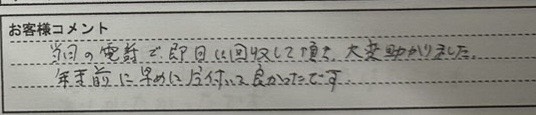 お客様コメント
当日の電話で即日に回収して頂き、大変助かりました。
年末前に早めに片付いて良かったです